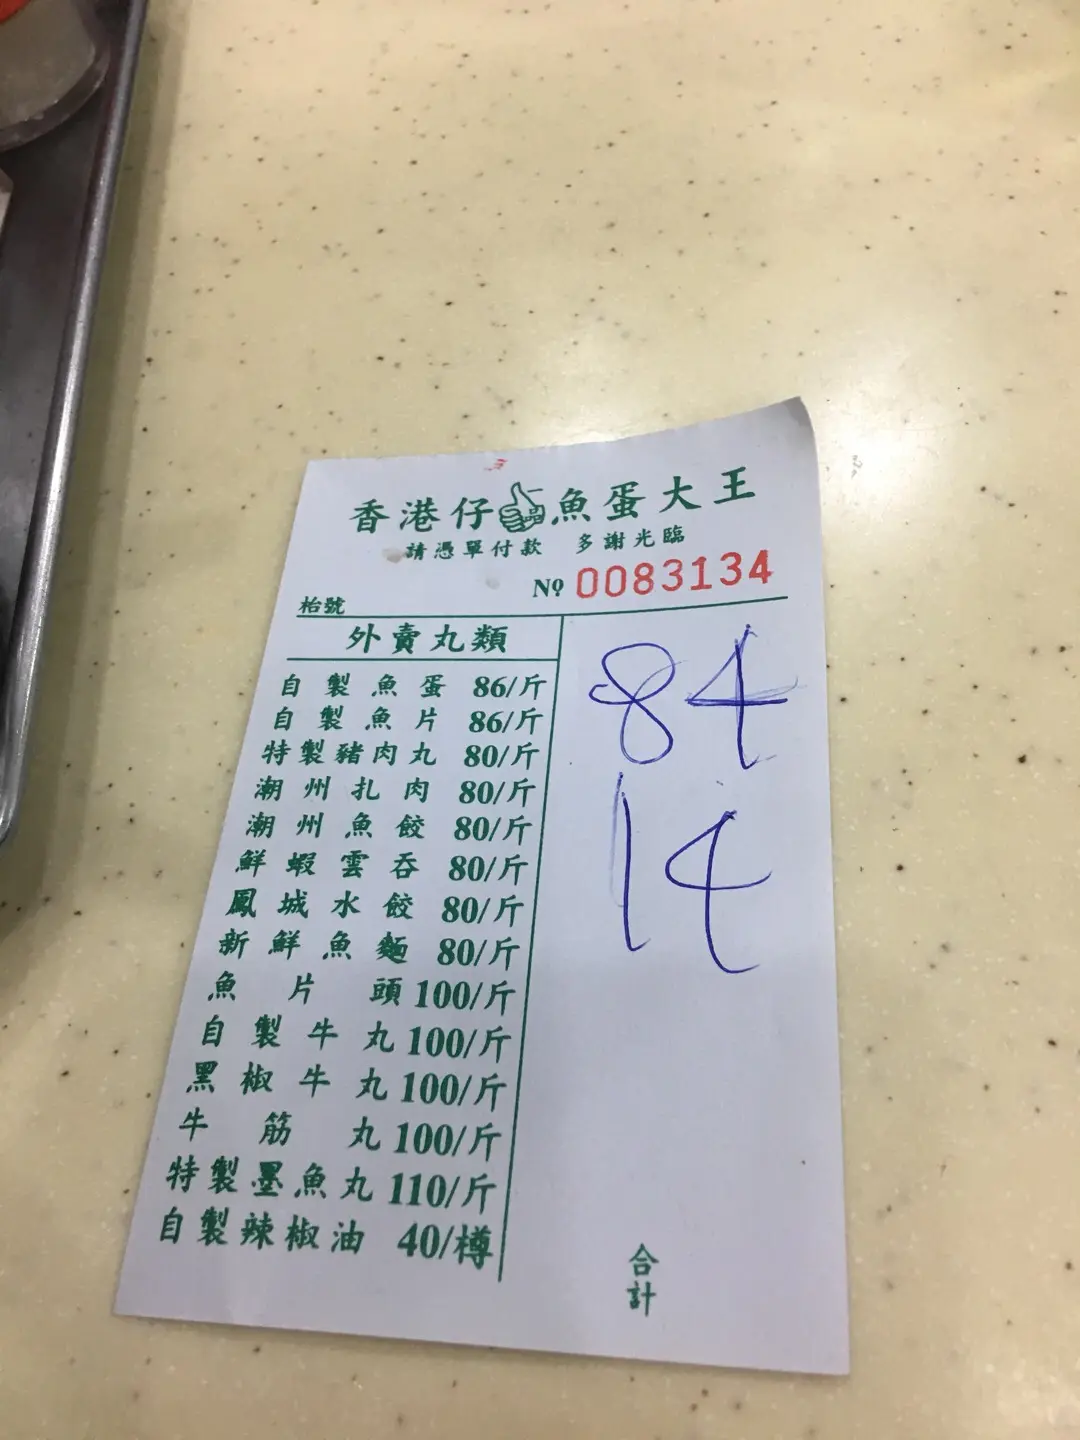 香港仔魚蛋大王
請憑單付款 多謝光臨
Nº 0083134
枱號
外賣丸類
自製魚蛋 86/斤
自製魚片 86/斤
特製豬肉丸 80/斤
潮州扎肉 80/斤
潮州魚餃 80/斤
鮮蝦雲吞 80/斤
鳳城水餃 80/斤
新鮮魚麵 80/斤
魚片頭 100/斤
自製牛丸 100/斤
黑椒牛丸 100/斤
牛筋丸 100/斤
特製墨魚丸 110/斤
自製辣椒油 40/樽
84
14
合計